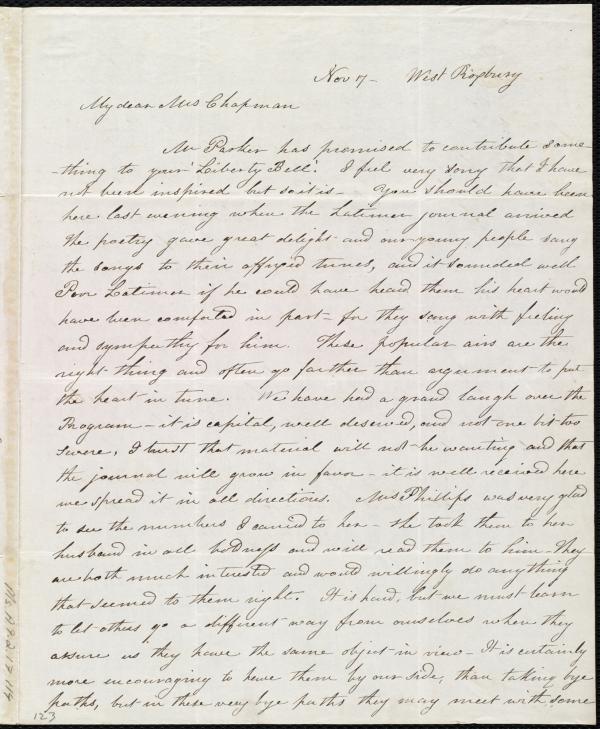 Nov 7 - West Roxbury
My dear Mrs Chapman
Mr Parker has promised to contribute some-
-thing to your 'Liberty Bell'. I feel very sorry that I have
not been inspired but so it is - You should have been
here last evening when the Latimer journal arrived
The poetry gave great delight and our young people sang
the songs to their affixed tunes, and it sounded well
Poor Latimer if he could have heard them his heart would
have been comforted in part - for they sang with feeling
and sympathy for him. These popular airs are the
right thing and often go farther than argument to put
the heart in tune. We have had a grand laugh over the
Program - it is capital, well deserved, and not one bit too
severe, I trust that material will not be wanting and that
the journal will grow in favor - it is well received here
we spread it in all directions. Mrs Phillips was very glad
to see the numbers I carried to her - she took them to her
husband in all boldness and will read them to him - They
are both much interested and would willingly do anything
that seemed to them right. It is hard, but we must learn
to let others go a different way from ourselves when they
assure us they have the same object in view - It is certainly
more encouraging to have them by our side, than taking bye
paths, but in these very bye paths they may meet with some
123